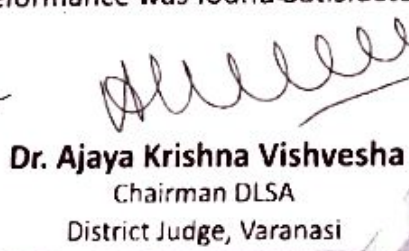 was found
Dr. Ajaya Krishna Vishvesha
Chairman DLSA
District Judge, Varanasi